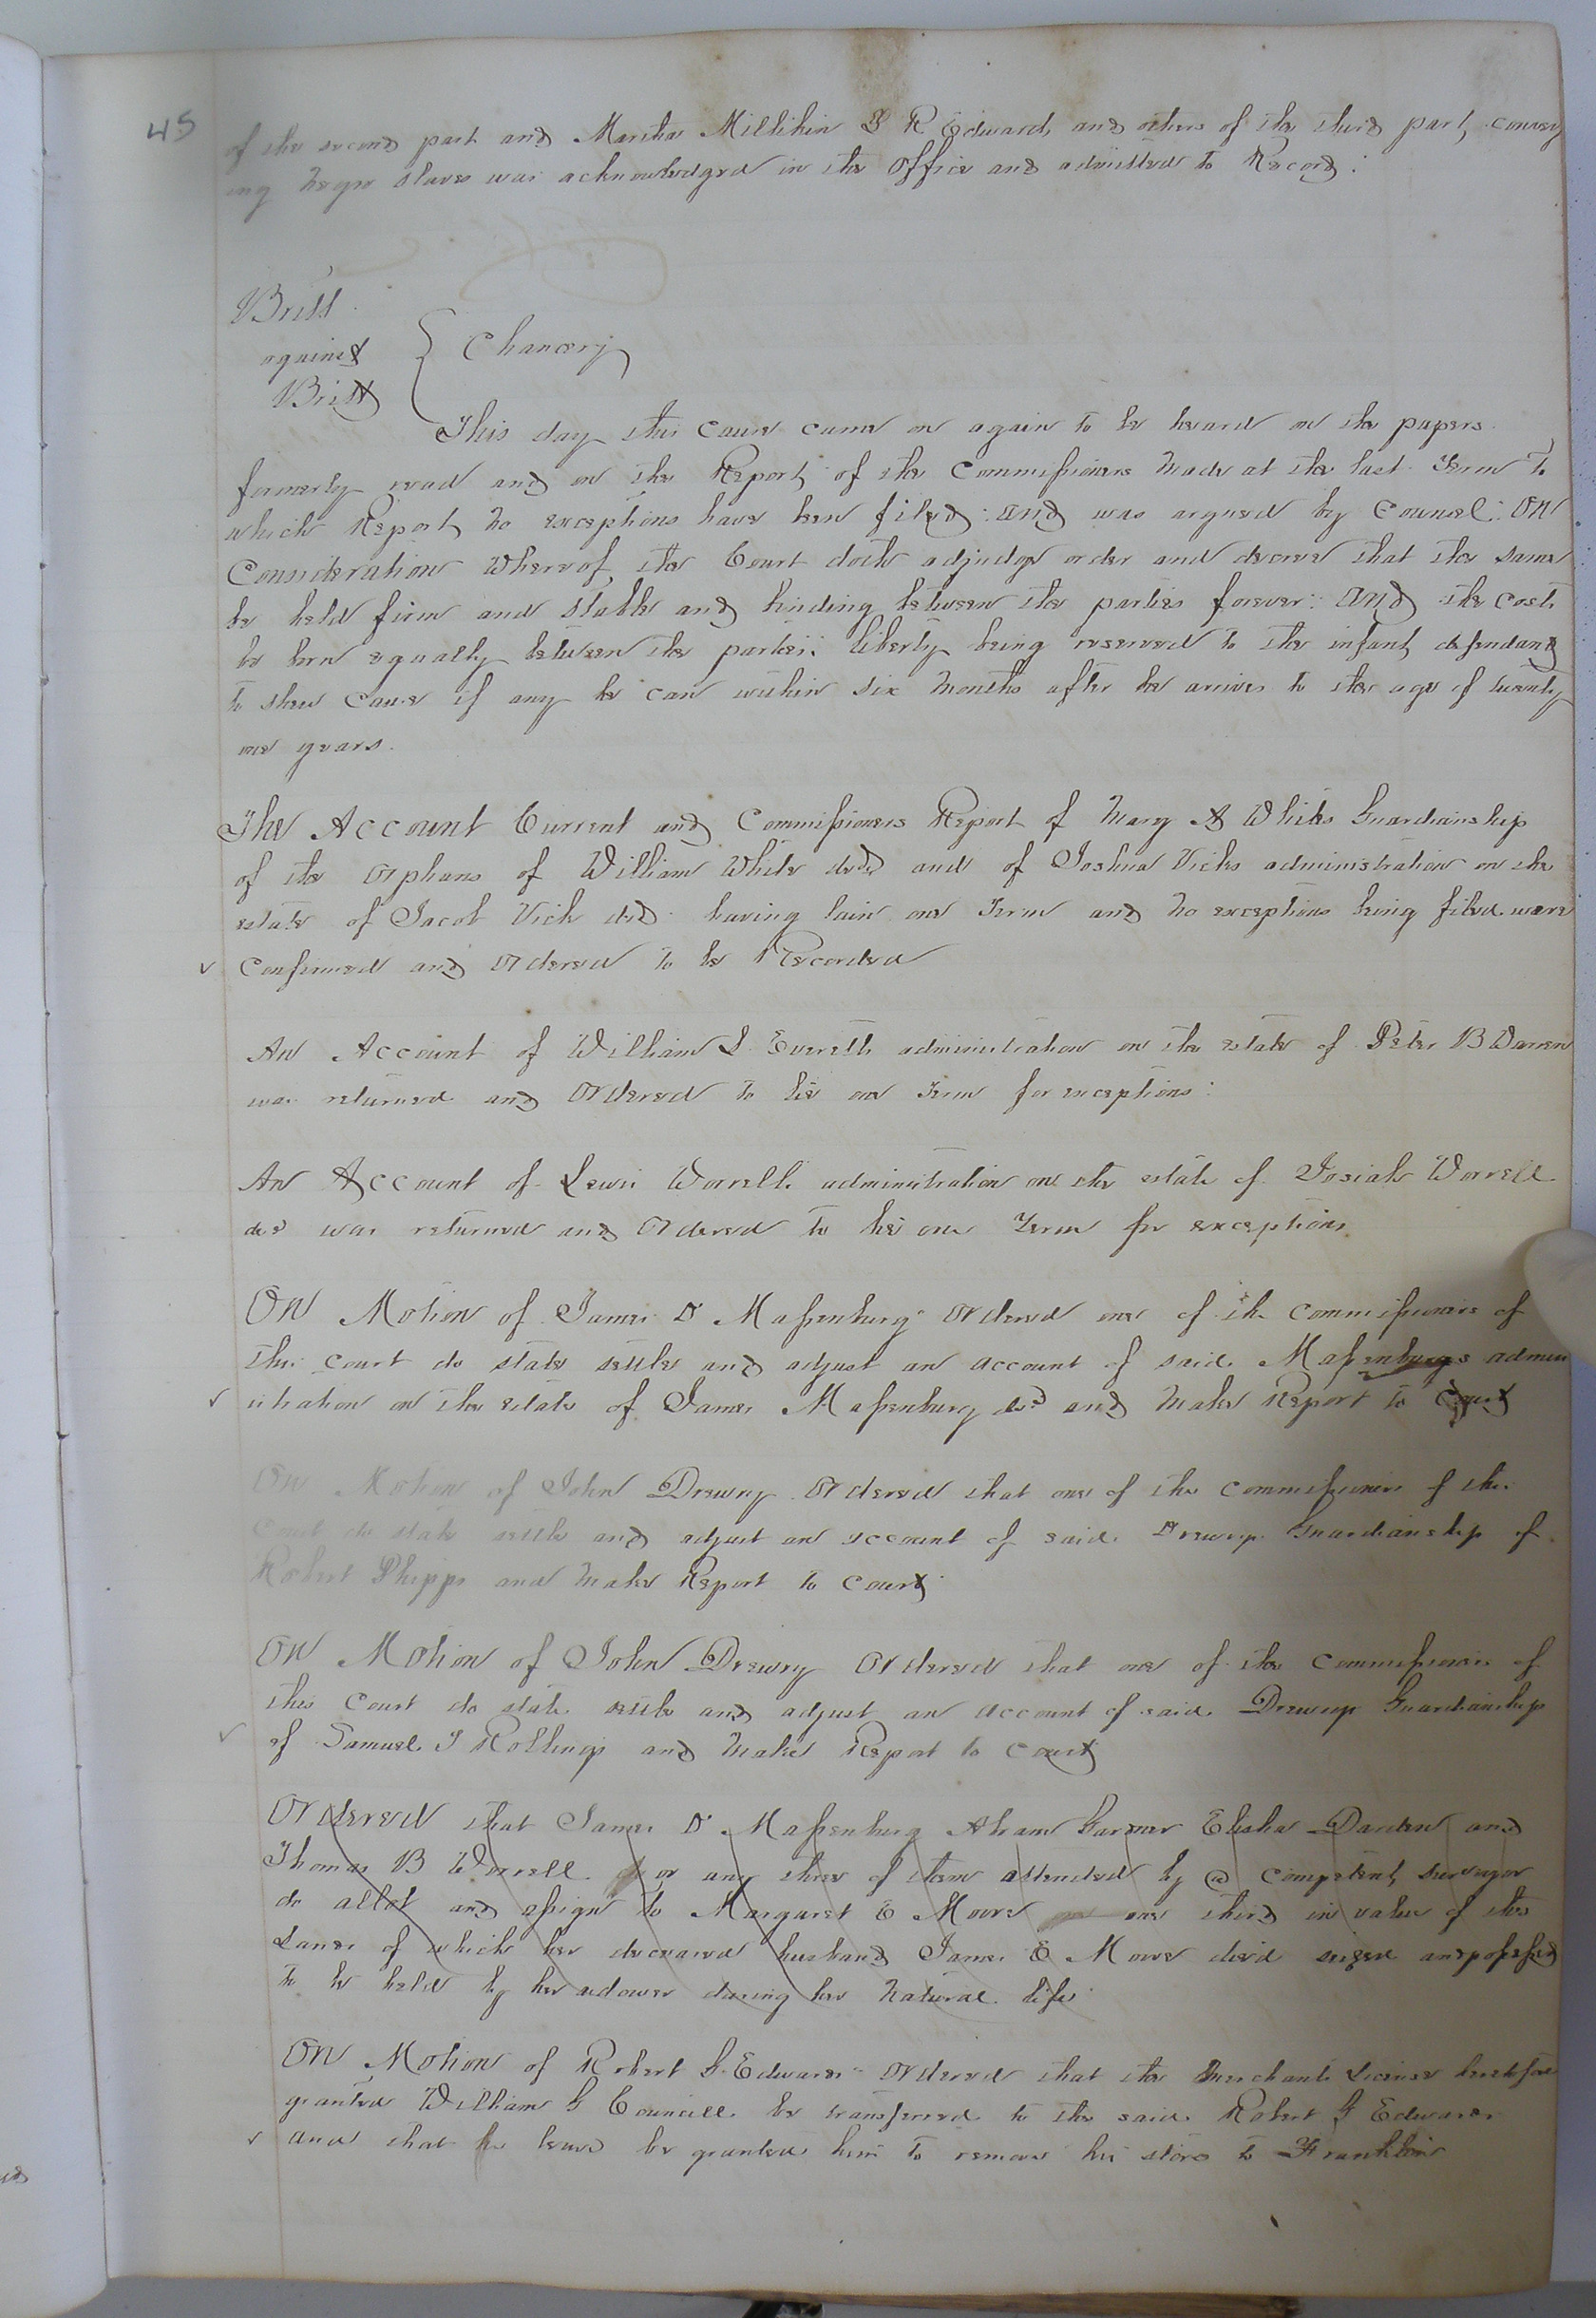 45
of the second part and Martha Millikin S R Edwards and others of the third part convey
ing negro slaves was acknowledged in the office and admitted to Record:
Britt
against
Britt
Chancery
This day this cause came on again to be heard on the papers
formerly read and on the Report of the Commissioners made at the last Term to
which Report no exceptions have been filed: and was argued by Counsel: On
Consideration Whereof the Court doth adjudge order and decree that the same
be held firm and stable and binding between the parties forever: And the costs
be born equally between the parties: liberty being reserved to the infant defendant
to shew cause if any he can within six months after he arrives to the age of twenty
one years.
The Account Current and Commissioners Report of Mary A Whites Guardianship
of the orphans of William White decd and of Joshua Vicks administration on the
estate of Jacob Vick decd having lain one Term and no exceptions being filed were
confirmed and ordered to be Recorded
An Account of William L Everetts administration on the estate of Peter B Darren
was returned and ordered to lie one Term for exceptions:
An Account of Lewis Worrells administration on the estate of Josiah Worrell
decd was returned and ordered to lie one Term for exceptions
On Motion of James D Massenburg ordered one of the commissioners of
this court do state settle and adjust an account of said Massenburgs admin
istration on the estate of James Massenburg decd and make Report to Court
On Motion of John Drewry ordered that one of the commissioners of the
Court do state settle and adjust an account of said Drewrys Guardianship of
Robert Phipps and make Report to Court
On Motion of John Drewry ordered that one of the commissioners of
this Court do state settle and adjust an account of said Drewrys Guardianship
of Samuel J Rollings and make Report to Court
Ordered that James D Massenburg Abram Garner Elisha Darden and
Thomas B Worrell or any three of them attended by a competent surveyor
do allot and assign to Margaret E Moore one third in value of the
Lands of which her deceased husband James E Moore died seized and possessed
to be held by her as dower during her natural life
On Motion of Robert G Edwards ordered that the Merchants License heretofore
granted William G Councill be transferred to the said Robert G Edwards
and that leave be granted him to remove his store to Franklin